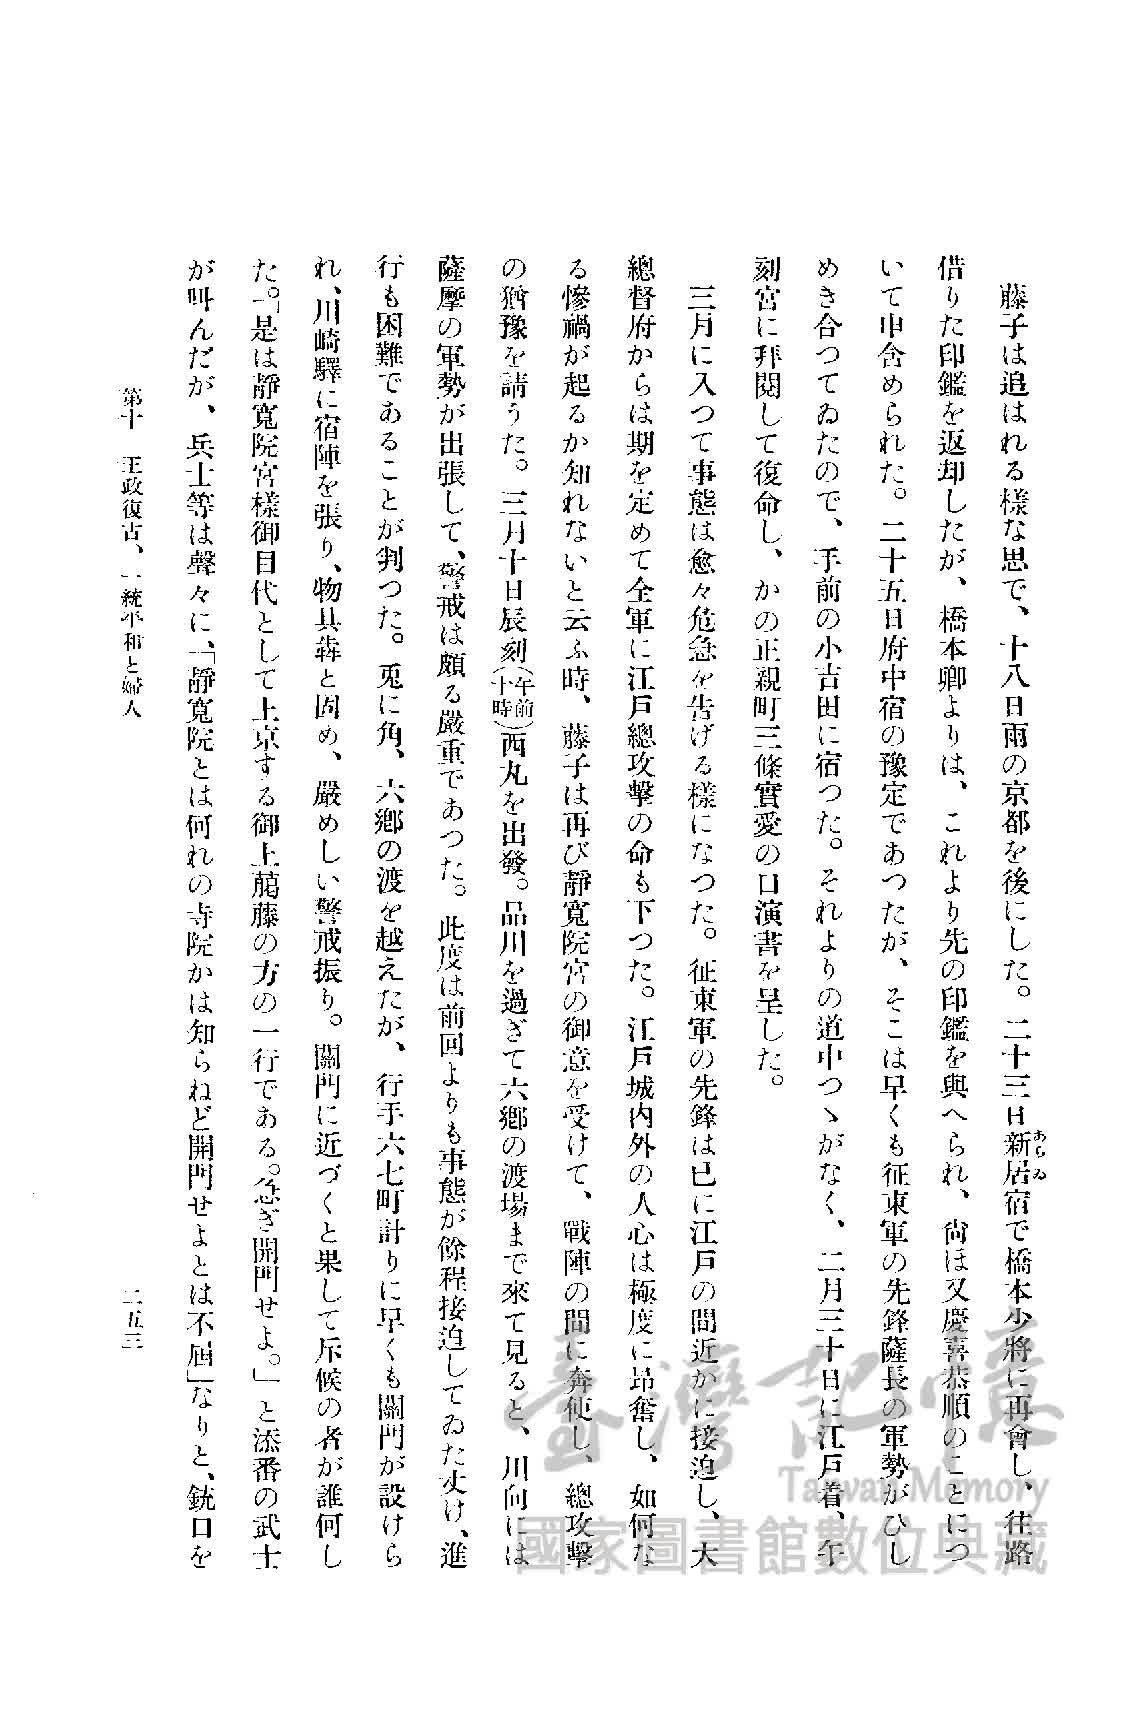 藤子は追はれる樣な思で、十八日雨の京都を後にした。二十三日新居宿で橋本少將に再會し、往路
あらゐ
借りた印鑑を返却したが、橋本卿よりは、これより先の印鑑を與へられ、尙ほ又慶喜恭順のことにつ
いて申含められた。二十五日府中宿の豫定であつたが、そこは早くも征東軍の先鋒薩長の軍勢がひし
めき合つてゐたので、手前の小吉田に宿つた。それよりの道中つゝがなく、二月三十日に江戸着、午
刻宮に拜閲して復命し、かの正親町三條實愛の口演書を呈した。
三月に入つて事態は愈々危急を吿げる樣になつた。征東軍の先鋒は已に江戸の間近かに接迫し、大
總督府からは期を定めて全軍に江戸總攻擊の命も下つた。江戸城內外の人心は極度に昻奮し、如何な
る慘禍が起るか知れないと云ふ時、藤子は再び靜寬院宮の御意を受けて、戰陣の間に奔使し、總攻擊
の猶豫を請うた。三月十日辰刻(午前十時)西丸を出發。品川を過ぎて六鄕の渡場まで來て見ると、川向には
薩摩の軍勢が出張して、警戒は頗る嚴重であつた。此度は前回よりも事態が餘程接迫してゐた丈け、進
行も困難であることが判つた。兎に角、六鄕の渡を越えたが、行手六七町計りに早くも關門が設けら
れ、川崎驛に宿陣を張り、物具犇と固め、嚴めしい警戒振り。關門に近づくと果して斥候の者が誰何し
た。「是は靜寬院宮樣御目代として上京する御上﨟藤の方の一行である。急ぎ開門せよ。」と添番の武士
が叫んだが、兵士等は聲々に、「靜寬院とは何れの寺院かは知らねど開門せよとは不屆」なりと、銃口を
第十 王政復古、一統平和と婦人
二五三
臺灣記憶
Taiwan Memory
國家圖書館數位典藏